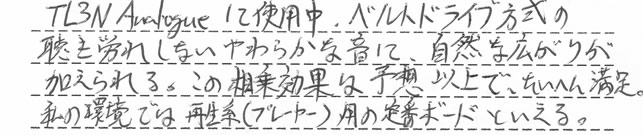 TL3N Analogue にて使用中。ベルトドライブ方式の
聴き労れしないやわらかな音に、自然な広がりが
加えられる。この相乗効果は予想以上で、たいへん満足。
私の環境では再生系(プレーヤー)用の定番ボードといえる。